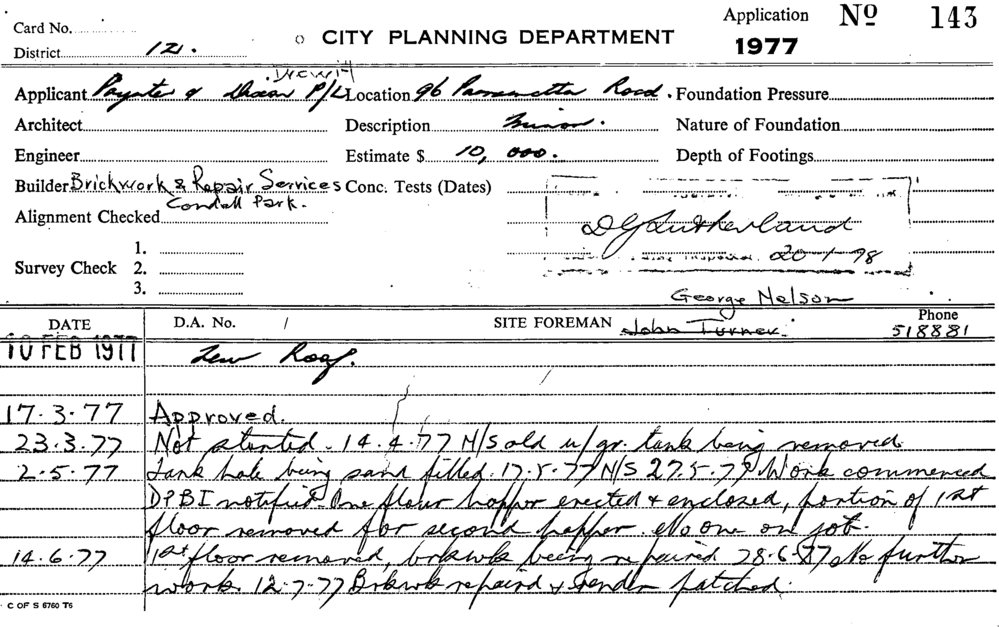 Card No.
District 121.
CITY PLANNING DEPARTMENT
Application Nº 143
1977
Applicant Paynter & Dixon P/L Location 96 Parramatta Road. Foundation Pressure
Architect Description Minor. Nature of Foundation
Engineer Estimate $ 10,000. Depth of Footings
Builder Brickwork & Repair Services Conc. Tests (Dates)
Condell Park.
Alignment Checked
DG Sutherland
20-1-78
Survey Check 1.
2.
3.
George Nelson
DATE D.A. No. / SITE FOREMAN John Turner. Phone 518881
10 FEB 1977 New Roof.
17.3.77 Approved.
23.3.77 Not started - 14.4.77 N/S old u/gr. tank being removed.
2.5.77 Tank hole being sand filled. 17.5.77 N/S 27.5.77 Work commenced
DPBI notified - One flour hopper erected & enclosed, portion of 1st
floor removed for second hopper. No one on job.
14.6.77 1st floor removed, brkwk being repaired 28.6.77 No further
work. 12.7.77 Brkwk repaired & render patched.
C OF S 6760 T6